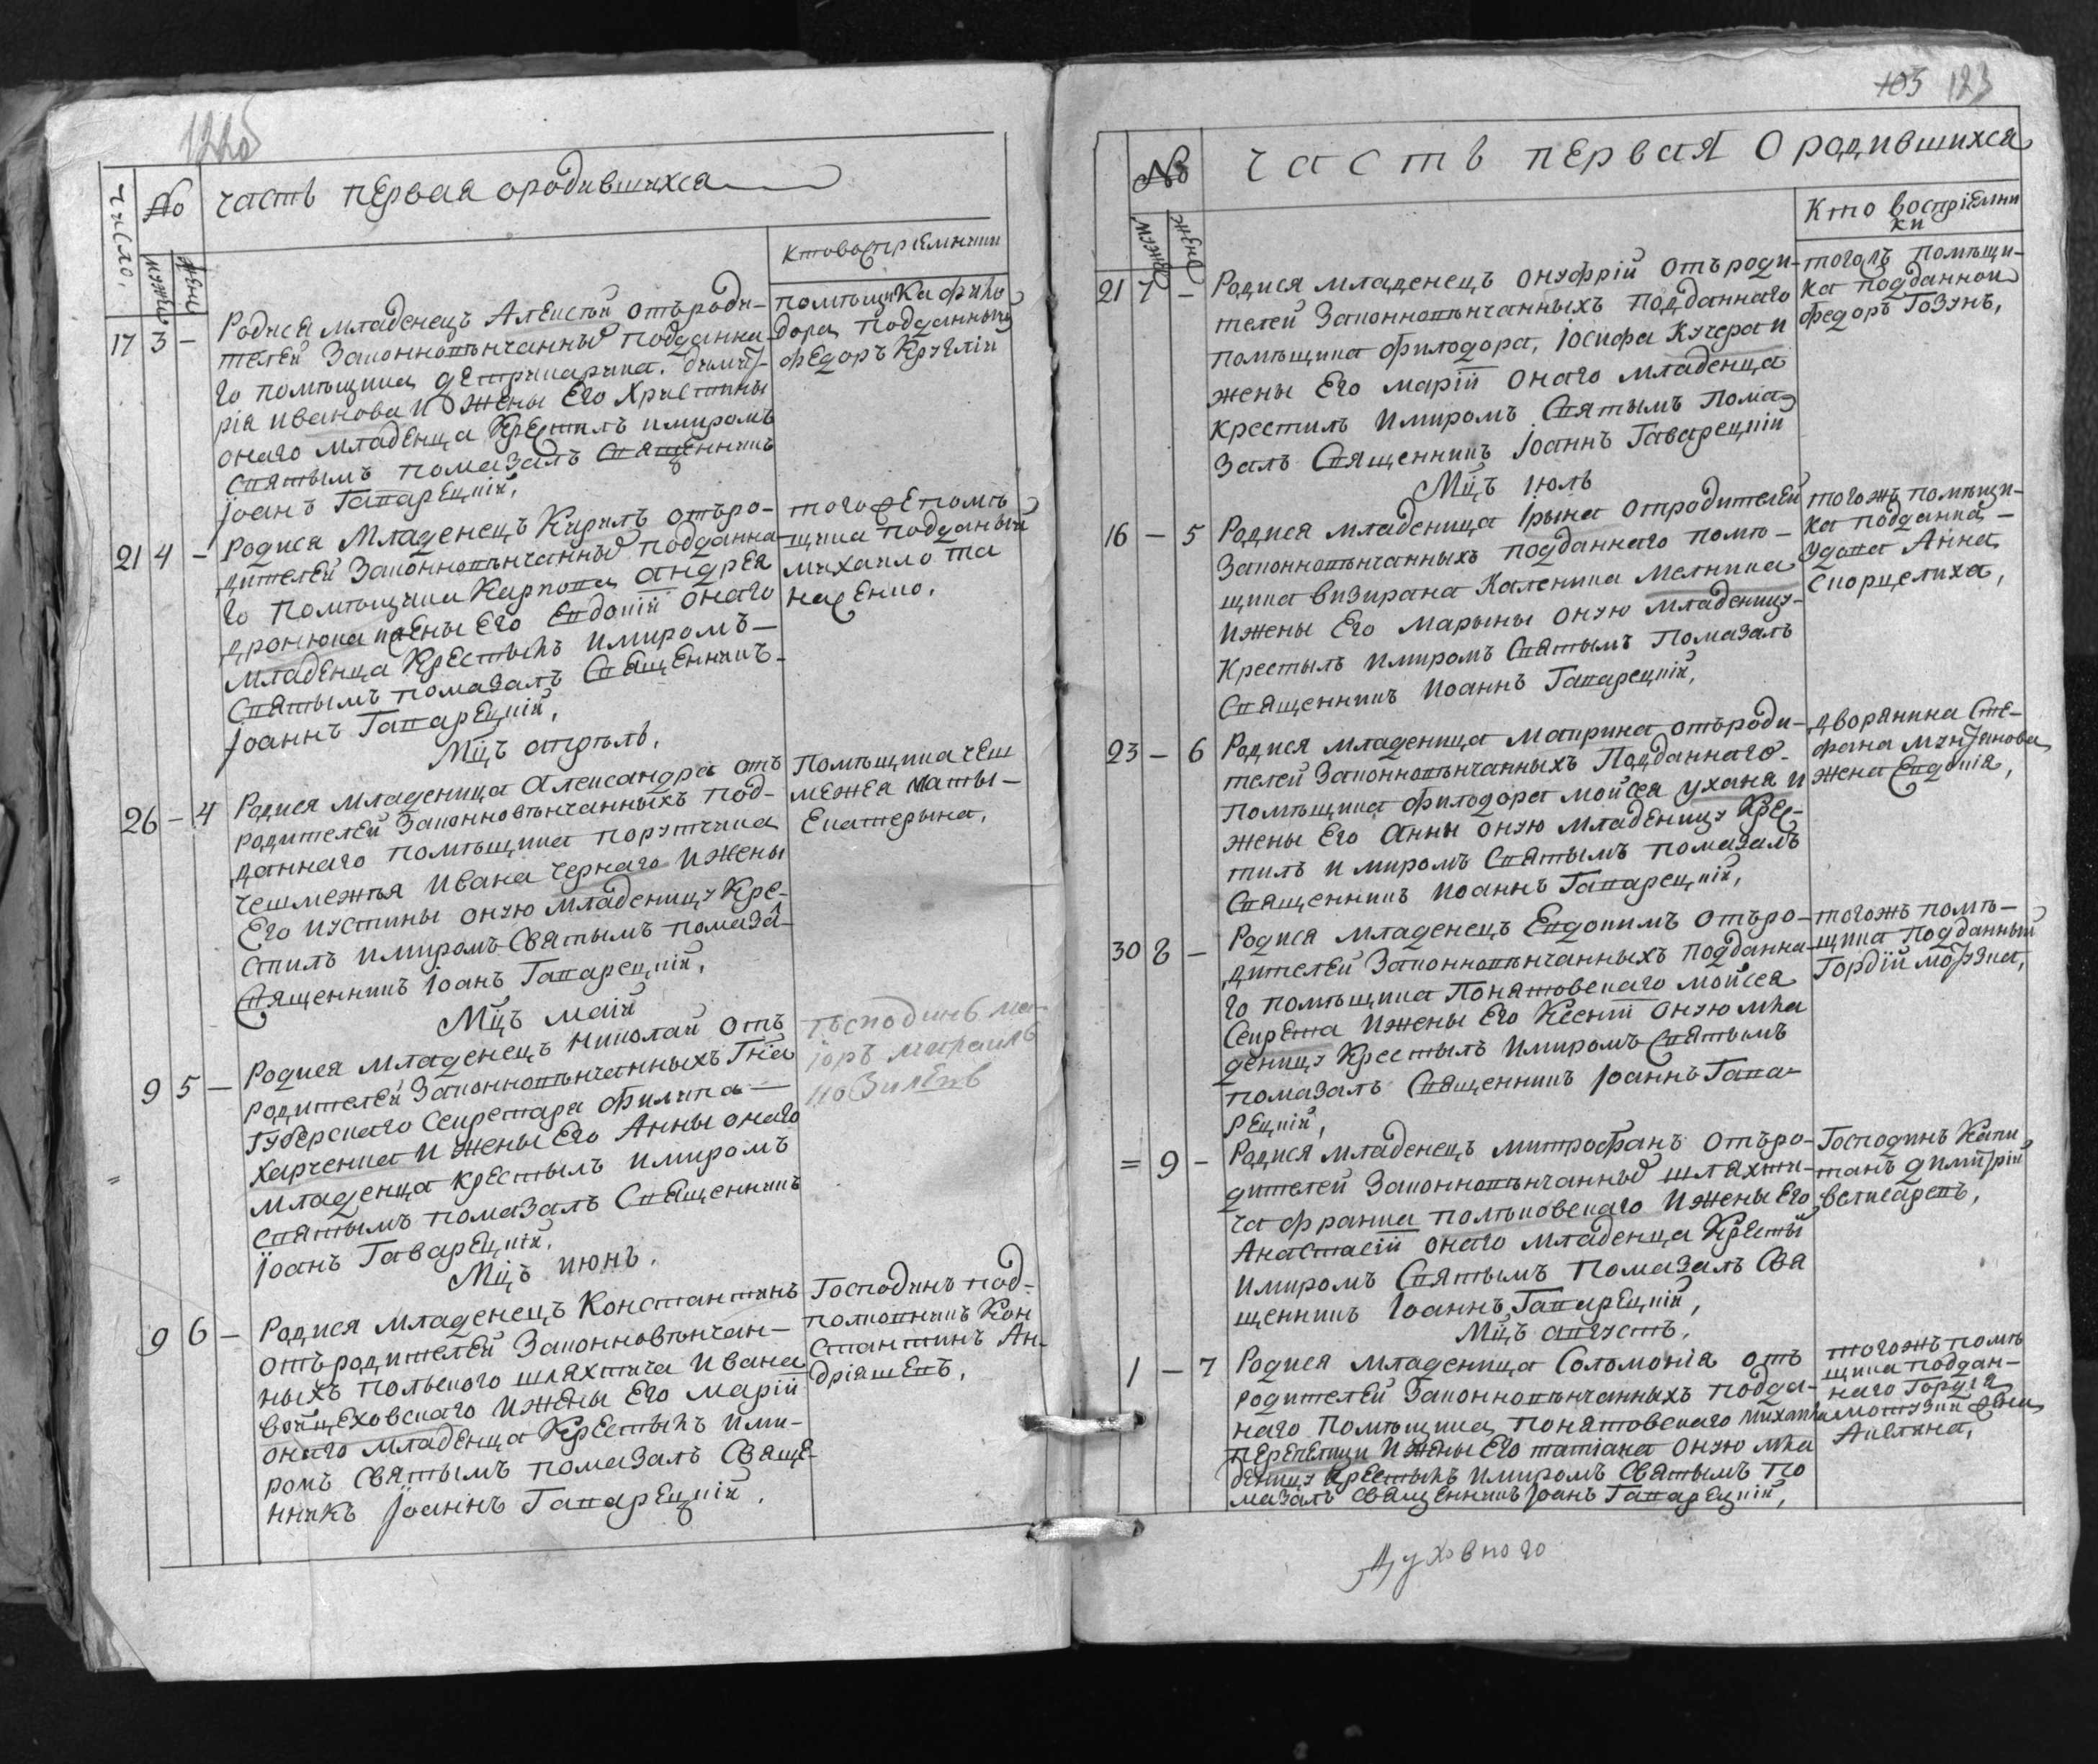 122об
число.
№
часть первая ородившихся
мужеск
женск
ктовоспрiемники
17 3 –
Родися младенецъ Алеѯѣй отъроди-
телей Законновѣнчанныхъ подданна-
го помѣщика детрикарика. димит-
рія иванова и жены Его Христины
онаго младенца Крестилъ имиромъ
святымъ помазалъ священникъ
Іоанъ Гаварецкій,
помѣщика фило
дора подданный
федоръ Круглій
21 4 –
Родися младенецъ Кирилъ отъро-
дителей Законновѣнчанныхъ подданна-
го помѣщика Карпова андрея
дронюка ижены Его Евдокій онаго
младенца Крестылъ имиромъ –
Святымъ помазалъ Священникъ –
Іоаннъ Гаварецкій,
того же помѣ
щика подданый
михаило та
насенко.
Мцъ апрѣль.
26 – 4
Родися младеница Александра отъ
родителей Законновѣнчанныхъ под-
даннаго помѣщика порутчика
чешмежѣя Ивана Чернаго ижены
Его иустины оную младеницу Кре-
стилъ имиромъ Святымъ помаза-
Священникъ Іоанъ Гаварецкій,
Помѣщика чеш
межея маты –
Екатерына,
Мцъ маій
9 5 –
Родися младенецъ николай отъ
родителей Законновѣнчанныхъ Гна
Губерскаго Секретара филипа –
Харченка и жены Его Анны онаго
младенца крестылъ имиромъ
святымъ помазалъ Священникъ
Іоанъ Гаварецкій,
господинъ ма-
іоръ
Мцъ июнь.
9 6 –
Родися младенецъ Константинъ
отъродителей Законновѣнчан-
ныхъ польского шляхтича Ивана
войцеховскаго ижены Его марій
онаго младенца Крестылъ ими-
ромъ Святымъ помазалъ Свяще-
нникъ Іоаннъ Гаварецкій,
Господинъ под-
полковникъ Кон
стантинъ Ан-
дріяшевъ,
105 123
№
часть первая О родившихся
мужеск
женск
Кто воспріемни
ки
21 7 –
Родися младенецъ онуфрій отъроди-
телей Законновѣнчанныхъ подданнаго
помѣщика филодора, Іосифа Кучера и
жены Его марій онаго младенца
крестилъ имиромъ Святымъ пома-
залъ Священникъ Іоаннъ Гаварецкій
тогожъ помѣщи-
ка подданной
федоръ Гозунъ,
Мцъ июль
16 – 5
Родися младеница Ірына отродителей
Законновѣнчанныхъ подданнаго помѣ –
щика визирана Каленика мелника
ижены Его марыны оную младеницу-
крестылъ имиромъ Святымъ помазалъ
Священникъ Иоаннъ Гаварецкій,
тогожъ помѣщи-
ка подданна –
удова Анна
скорцелиха,
23 – 6
Родися младеница маврина отъроди-
телей Законновѣнчанныхъ Подданнаго-
помѣщика филодора мойсея уханя и
жены Его анны оную младеницу Крес-
тилъ и миромъ Святымъ помазалъ
Священникъ Иоаннъ Гаварецкій,
дворянина Сте-
фана мунтянова
жена Евдокія,
30 8 –
Родися младенецъ Евдокимъ отъро-
дителей Законновѣнчанныхъ подданна-
го помѣщика Понятовскаго мойсея
Секрета ижены Его Ксеній оную мла
деницу Крестылъ имиромъ Святымъ
помазалъ Священникъ Іоаннъ Гава-
рецкій,
тогожъ помѣ-
щика подданный
Гордій мотузка,
= 9 –
Родися младенецъ митрофанъ отъро-
дителей Законновѣнчанныхъ шляхти-
ча франка полѣновскаго ижены Его
Анастасій онаго младенца Кресты
имиромъ Святымъ помазалъ Свя
щенникъ Іоаннъ Гаварецкій,
Господинъ Капи
танъ димитрій
велисаревъ,
Мцъ августъ,
1 – 7
Родися младеница Соломонія отъ
родителей Законновѣнчанныхъ подда-
наго помѣщика понятовскаго михаила
перепелици ижены Его татіана оную мла
деницу крестылъ имиромъ Святымъ по
мазалъ священникъ Іоанъ Гаварецкій,
тогожъ помѣ
щика поддан-
наго Гордія
мотузки жена
Авляна,
Духовного